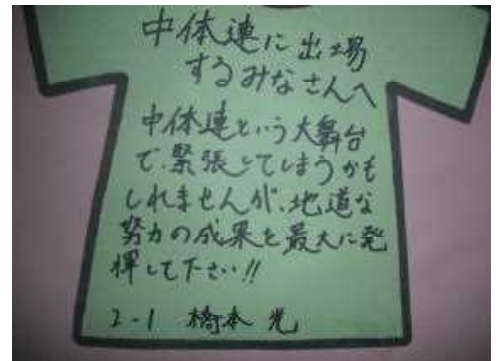 中体連に出場
するみなさんへ
中体連という大舞台
で、緊張してしまうかも
しれませんが、地道な
努力の成果を最大に発
揮して下さい!!
2-1 橋本 光